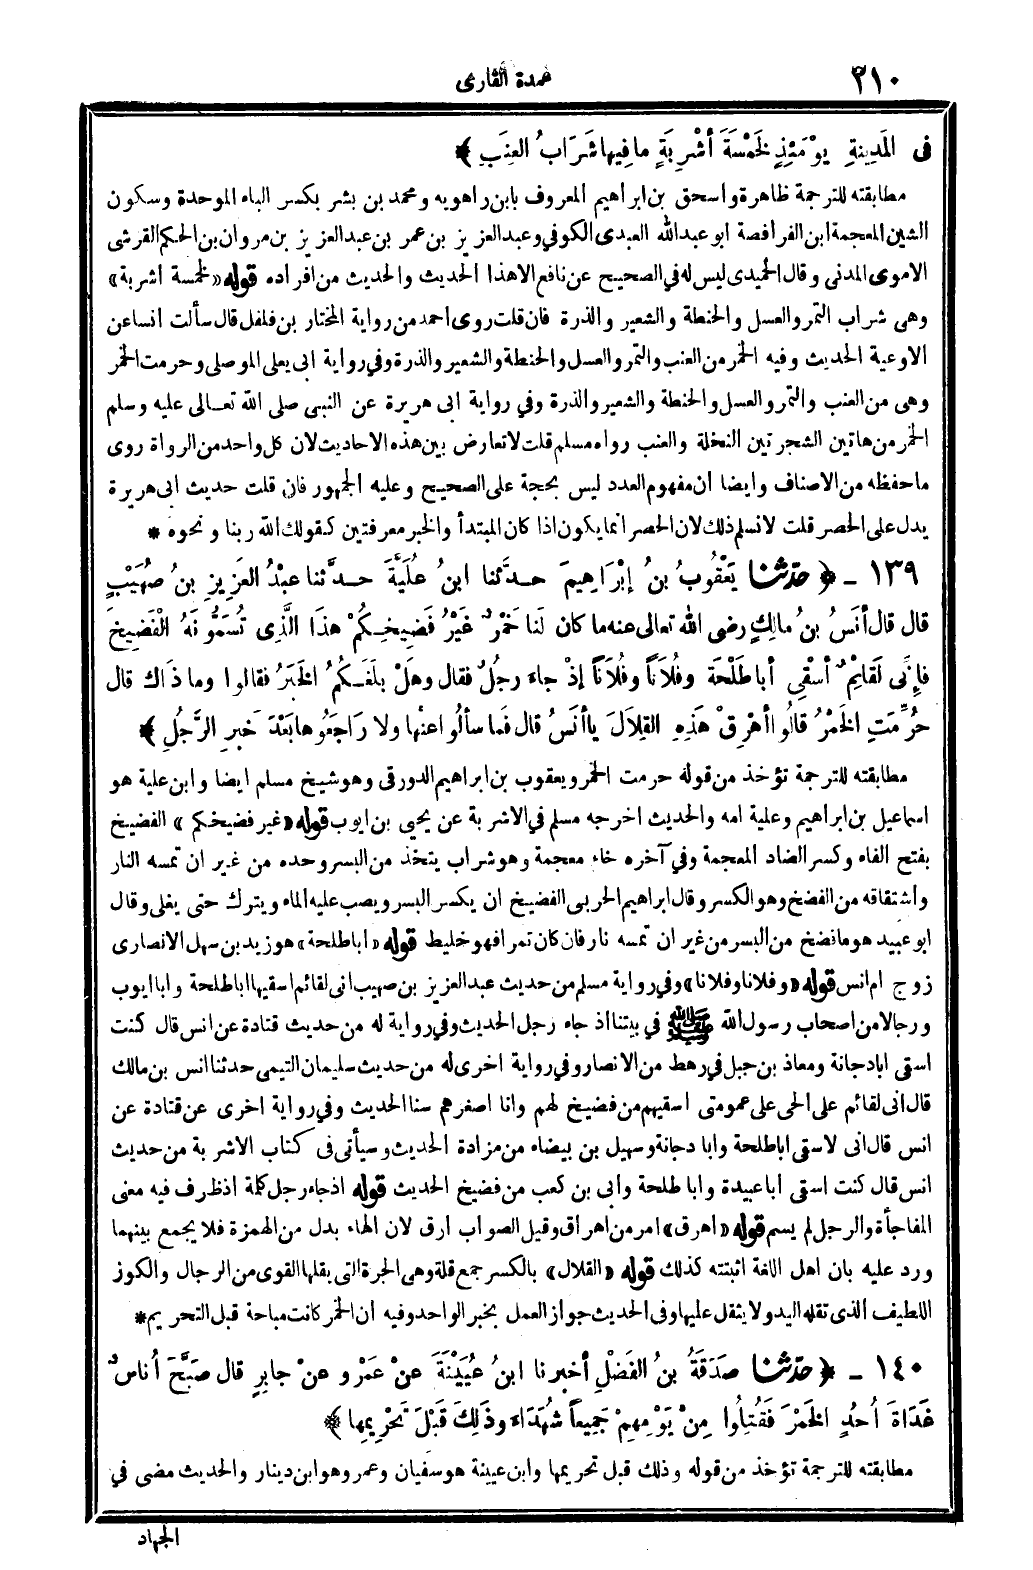 ٢١٠ عمدة القارى
فى المَدِينَةِ يوْمَئِذٍ لَخَمْسَةَ أشْرِبَةٍ ما فِيها شَرَابُ العِنَبِ ﴾
مطابقته للترجمة ظاهرة واسحق بن ابراهيم المعروف بابن راهويه ومحمد بن بشر بكسر الباء الموحدة وسكون
الشين المعجمة ابن الفرافصة ابو عبد الله العبدى الكوفي وعبد العزيز بن عمر بن عبد العزيز بن مروان بن الحكم القرشى
الاموى المدنى وقال الحميدى ليس له في الصحيح عن نافع الا هذا الحديث والحديث من افراده قوله «لخمسة اشربة»
وهى شراب التمر والعسل والحنطة والشعير والذرة فان قلت روى احمد من رواية المختار بن فلفل قال سألت انسا عن
الاوعية الحديث وفيه الخمر من العنب والتمر والعسل والحنطة والشعير والذرة وفي رواية ابى يعلى الموصلى وحرمت الخمر
وهى من العنب والتمر والعسل والحنطة والشعير والذرة وفي رواية ابى هريرة عن النبى صلى الله تعالى عليه وسلم
الخمر من هاتين الشجرتين النخلة والعنب رواه مسلم قلت لا تعارض بين هذه الاحاديث لان كل واحد من الرواة روى
ما حفظه من الاصناف وايضا ان مفهوم العدد ليس بحجة على الصحيح وعليه الجمهور فان قلت حديث ابى هريرة
يدل على الحصر قلت لا نسلم ذلك لان الحصر انما يكون اذا كان المبتدأ والخبر معرفتين كقولك الله ربنا ونحوه *
١٣٩ - ﴿ حدّثنا يَعْقُوبُ بنُ إبْرَاهِيمَ حدَّثنا ابنُ عُلَيَّةَ حدَّثنا عبْدُ العَزِيزِ بنُ صُهَيْبٍ
قال قال أنَسُ بنُ مالِكٍ رضى الله تعالى عنه ما كان لَنا خَمْرٌ غَيْرُ فَضِيخِكُمْ هذَا الَّذِى تُسَمُّونَهُ الْفَضِيخَ
فإِنِّى لَقائِمٌ أسْقِى أبا طَلْحَةَ وفُلَاناً وفُلَاناً إذْ جاءَ رجُلٌ فقال وهَلْ بلَغَكُمُ الخَبَرُ فقالوا وما ذَاكَ قال
حُرِّمَتِ الخَمْرُ قالُوا أهْرِقْ هَذِهِ القِلَالَ ياأنَسُ قال فَما سألُوا عنْها ولا رَاجَعُوها بَعْدَ خبرِ الرَّجُلِ ﴾
مطابقته للترجمة تؤخذ من قوله حرمت الخمر ويعقوب بن ابراهيم الدورقى وهو شيخ مسلم ايضا وابن علية هو
اسماعيل بن ابراهيم وعلية امه والحديث اخرجه مسلم في الاشربة عن يحيى بن ايوب قوله «غير فضيخكم» الفضيخ
بفتح الفاء وكسر الضاد المعجمة وفي آخره خاء معجمة وهو شراب يتخذ من البسر وحده من غير ان تمسه النار
واشتقاقه من الفضخ وهو الكسر وقال ابراهيم الحربى الفضيخ ان يكسر البسر ويصب عليه الماء ويترك حتى يغلى وقال
ابو عبيد هو ما فضخ من البسر من غير ان تمسه نار فان كان تمرا فهو خليط قوله «اباطلحة» هو زيد بن سهل الانصارى
زوج ام انس قوله «وفلانا وفلانا» وفي رواية مسلم من حديث عبد العزيز بن صهيب انى لقائم اسقيها اباطلحة وابا ايوب
ورجالا من اصحاب رسول الله ﷺ في بيتنا اذ جاء رجل الحديث وفي رواية له من حديث قتادة عن انس قال كنت
اسقى ابا دجانة ومعاذ بن جبل في رهط من الانصار وفي رواية اخرى له من حديث سليمان التيمى حدثنا انس بن مالك
قال انى لقائم على الحى على عمومتى اسقيهم من فضيخ لهم وانا اصغرهم سنا الحديث وفي رواية اخرى عن قتادة عن
انس قال انى لاسقى اباطلحة وابا دجانة وسهيل بن بيضاء من مزادة الحديث وسيأتى فى كتاب الاشربة من حديث
انس قال كنت اسقى ابا عبيدة وابا طلحة وأبى بن كعب من فضيخ الحديث قوله اذ جاء رجل كلمة اذ ظرف فيه معنى
المفاجأة والرجل لم يسم قوله «اهرق» امر من اهراق وقيل الصواب ارق لان الهاء بدل من الهمزة فلا يجمع بينهما
ورد عليه بان اهل اللغة اثبتته كذلك قوله «القلال» بالكسر جمع قلة وهى الجرة التى يقلها القوى من الرجال والكوز
اللطيف الذى تقله اليد ولا يثقل عليها وفى الحديث جواز العمل بخبر الواحد وفيه ان الخمر كانت مباحة قبل التحريم *
١٤٠ - ﴿ حدّثنا صَدَقَةُ بنُ الفَضْلِ أخبرنا ابنُ عُيَيْنَةَ عنْ عَمْرٍو عنْ جابِرٍ قال صَبَّحَ أُناسٌ
غَدَاةَ أُحُدٍ الخَمْرَ فَقُتِلُوا مِنْ يَوْمِهِمْ جَمِيعاً شُهَدَاءَ وذَلِكَ قَبْلَ تَحْرِيمِها ﴾
مطابقته للترجمة تؤخذ من قوله وذلك قبل تحريمها وابن عيينة هو سفيان وعمرو هو ابن دينار والحديث مضى في
الجهاد